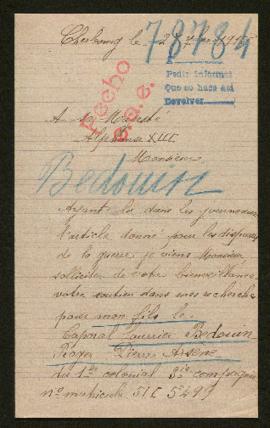 Cherbourg le
78784
Pedir informal
Que se hace así
Devolver
Hecho
A sa Majesté
Alphonse XIII
Monsieur,
Bedouin
Ayant lu dans les journaux
l'article donné pour les disparus
de la guerre je viens Monsieur
solliciter de votre bienveillance
votre soutien dans mes recherches
pour mon fils le
Caporal fourrier Bedouin
Pierre Arsène
du 1er colonial 3e compagnie
n° matricule 5499